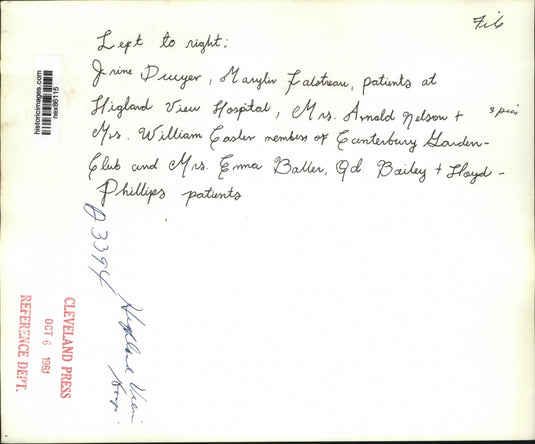 Left to right:
Irine Dwyer, Marylin Falstreau, patients at
Higland View Hospital, Mrs. Arnold Nelson +
Mrs. William Easler members of Canterbury Garden-
Club and Mrs. Emma Baller, Ed Bailey + Lloyd-
Phillips patients
3 pics
A3394
Highland View
Hosp.
CLEVELAND PRESS
OCT 6 1961
REFERENCE DEPT.
historicimages.com